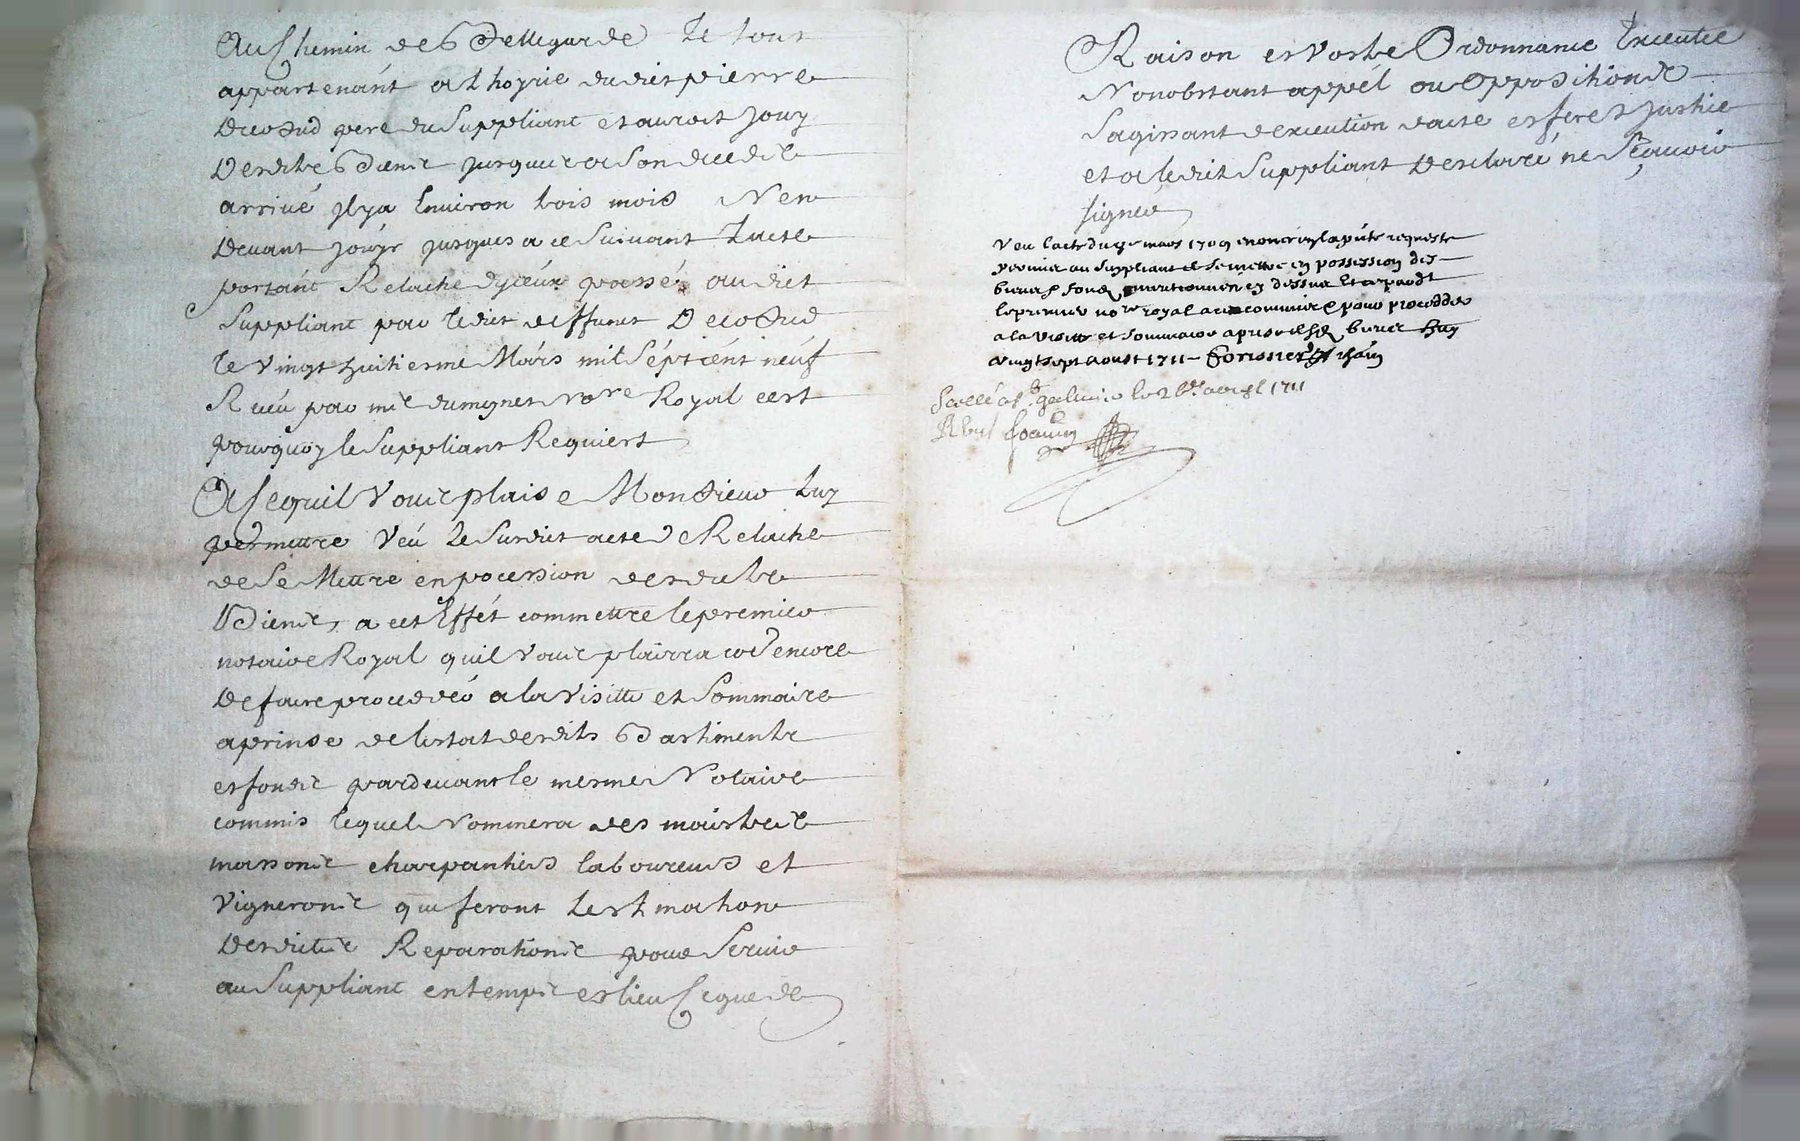 Au Chemin de Bellegarde Le tout
appartenant a Lhoyrie dudict pierre
pere du Suppliant et auroit Jouy
Desdits Biens jusques a son deceds
arrivé Il y a Environ trois mois N en
Devant Jouyr jusques a ce Suivant Lacte
portant Relache dyceux passé audict
Suppliant par ledict deffunct
le vingt huitiesme Mars mil Sept cent neuf
Receu par me dumignet no.re Royal cest
pourquoy le Suppliant Requiert
A Ce quil Vous plaise Monsieur Luy
permettre Veu Le Susdict acte de Relache
de Se Mettre en pocession desdicts
Biens, a cet Effét commettre le premier
notaire Royal quil Vous plairra et encore
De faire proceder a la Visitte et Sommaire
aprinse de lestat desdits Bastiments
et fonds pardevant le mesme Notaire
commis lequel Nommera des maistres
massons charpantiers laboureurs et
Vignerons qui feront Lestimation
Desdittes Reparations pour Servir
au Suppliant en temps et lieu Ce que de
Raison et Vostre Ordonnance Executée
Nonobstant appél ou Opposition
Sagissant dexecution dacte et feres Justice
et a ledict Suppliant Desclaré ne Sçavoir
signer
Veu lacte du mars 1709 enoncé en la pnte requeste
permis au Suppliant de Se mettre en possession des
biens & fonds mentionnés cy dessus Et a pardt
le premier no.re royal a ce commis pour proceder
a la Visitte et Sommaire aprise desd biens
vingt sept aoust 1711
Scellé a St galmier le 1711